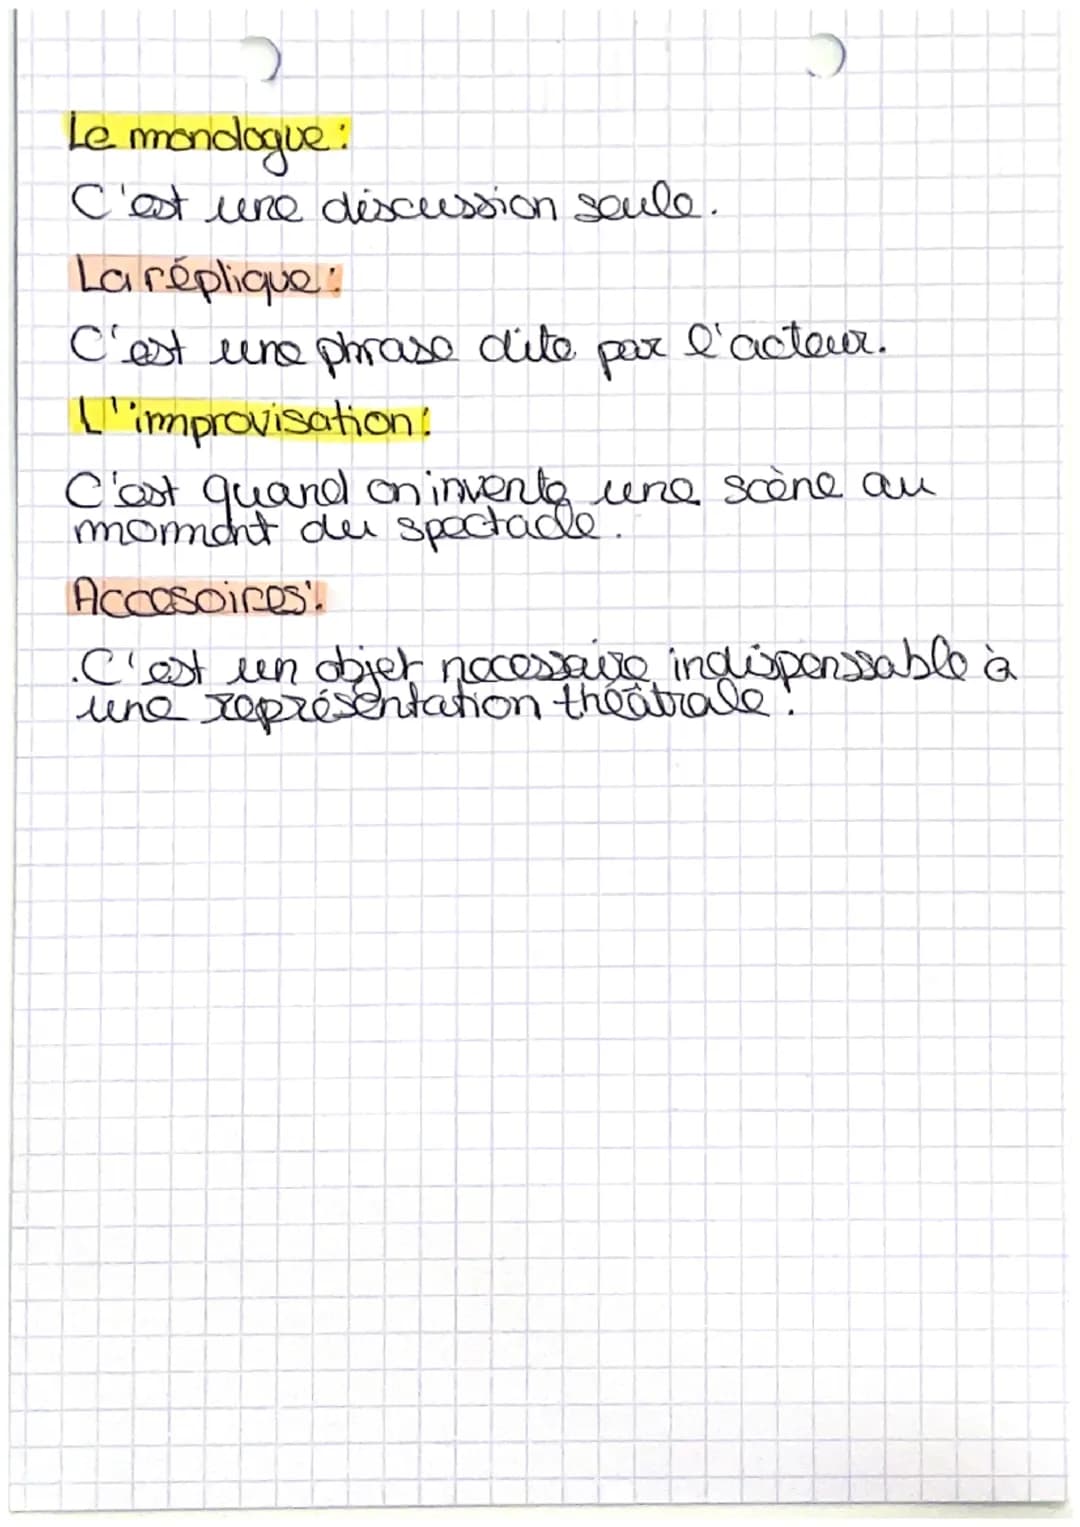 Le monologue :
C'est une discussion seule.
La réplique :
C'est une phrase dite par l'acteur.
L'improvisation :
C'est quand on invente une scène au
momment du spectacle.
Accesoires :
.C'est un objet necessaire, indispenssable à
une représentation théâtrale.